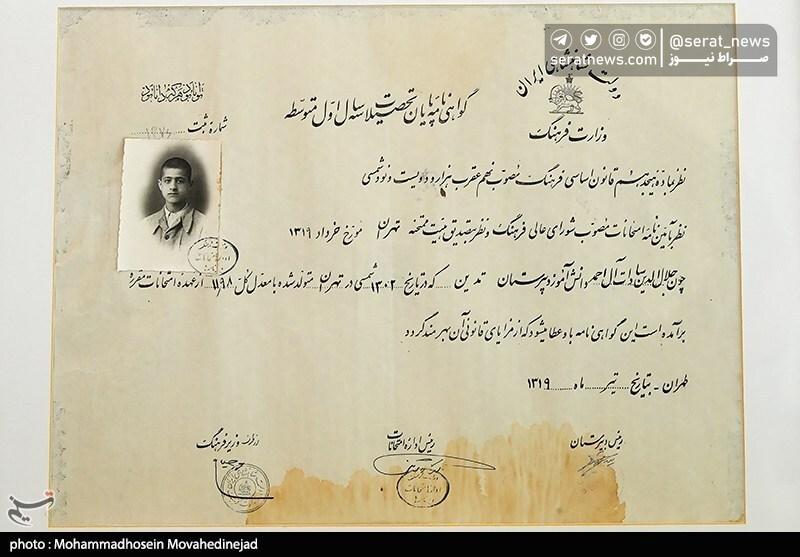 @serat_news
صراط نیوز
serat.news
دولت شاهنشاهی ایران
توانا بود هر که دانا بود
گواهی نامه پایان تحصیلات سه سال اول متوسطه
وزارت فرهنگ
شماره ثبت
نظر بماده هیجدهم قانون اساسی فرهنگ مصوب نهم عقرب هزار و دویست و نود شمسی
نظر بآئین نامه امتحانات مصوب شورای عالی فرهنگ و نظر بتصدیق هیئت ممتحنه تهران مورخ خرداد ۱۳۱۹
چون جلال الدین سادات آل احمد دانش آموز دبیرستان تدین که در تاریخ ۱۳۰۲ شمسی در تهران متولد شده با معدل کل ۱۱٫۹۸ از عهده امتحانات مقرره
برآمده است این گواهی نامه باو عطا میشود که از مزایای قانونی آن بهره مند گردد
طهران - بتاریخ تیر ماه ۱۳۱۹
رئیس دبیرستان
رئیس اداره امتحانات
از طرف وزیر فرهنگ
تسنیم
photo : Mohammadhosein Movahedinejad